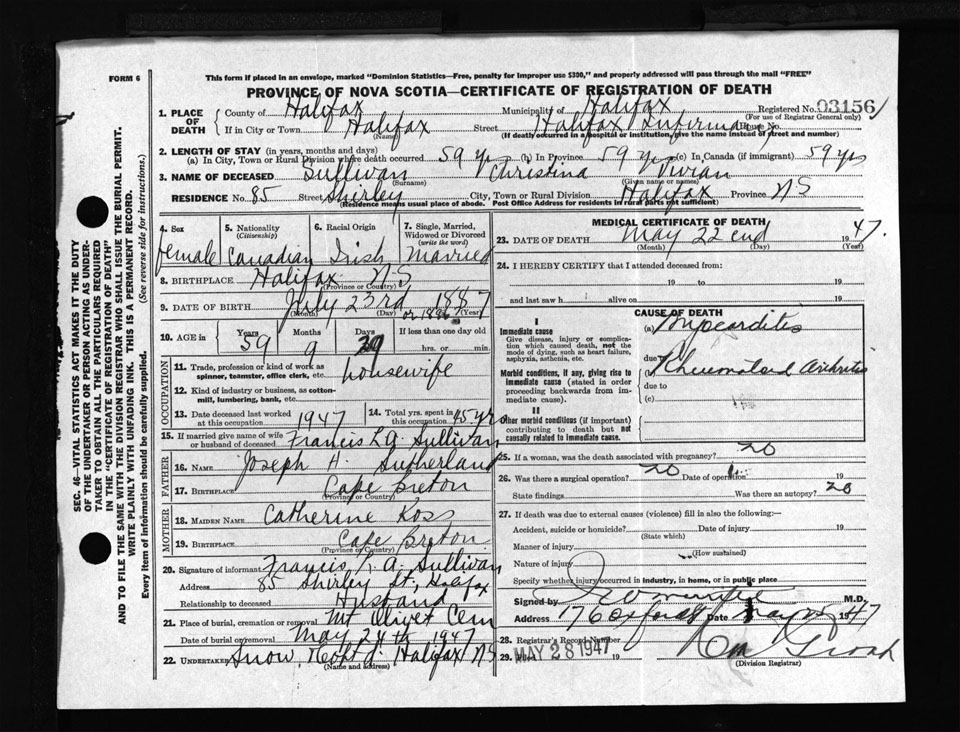 FORM 6
This form if placed in an envelope, marked "Dominion Statistics—Free, penalty for improper use $300," and properly addressed will pass through the mail "FREE"
PROVINCE OF NOVA SCOTIA—CERTIFICATE OF REGISTRATION OF DEATH
1. PLACE OF DEATH County of Halifax Municipality of Halifax Registered No. 03156
(For use of Registrar General only)
If in City or Town Halifax Street Halifax Infirmary House No.
(Name) (If death occurred in a hospital or institution, give the name instead of street and number)
2. LENGTH OF STAY (in years, months and days)
(a) In City, Town or Rural Division where death occurred 59 yrs (b) In Province 59 yrs (c) In Canada (if immigrant) 59 yrs
3. NAME OF DECEASED Sullivan Christina Vivian
(Surname) (Given name or names)
RESIDENCE No. 85 Street Shirley City, Town or Rural Division Halifax Province NS
(Residence means usual place of abode. Post Office Address for residents in rural parts not sufficient)
4. Sex 5. Nationality (Citizenship) 6. Racial Origin 7. Single, Married, Widowed or Divorced (write the word)
female Canadian Irish Married
8. BIRTHPLACE Halifax NS
(Province or Country)
9. DATE OF BIRTH July 23rd 1887
(Month) (Day) (Year)
10. AGE in Years Months Days If less than one day old
59 9 29 hrs. or min.
OCCUPATION
11. Trade, profession or kind of work as spinner, teamster, office clerk, etc. housewife
12. Kind of industry or business, as cotton-mill, lumbering, bank, etc.
13. Date deceased last worked at this occupation 1947 14. Total yrs. spent in this occupation 45 yrs
15. If married give name of wife or husband of deceased Francis L A Sullivan
FATHER
16. NAME Joseph H. Sutherland
17. BIRTHPLACE Cape Breton
(Province or Country)
MOTHER
18. MAIDEN NAME Catherine Ross
19. BIRTHPLACE Cape Breton
(Province or Country)
20. Signature of informant Francis L. A. Sullivan
Address 85 Shirley St, Halifax
Relationship to deceased Husband
21. Place of burial, cremation or removal Mt Olivet Cem
Date of burial or removal May 24th 1947
22. Undertaker Snow, Halifax NS
(Name and address)
MEDICAL CERTIFICATE OF DEATH
23. DATE OF DEATH May 22 end 1947.
(Month) (Day) (Year)
24. I HEREBY CERTIFY that I attended deceased from:
19 to 19
and last saw h alive on 19
CAUSE OF DEATH
I
Immediate cause (a) Myocarditis
Give disease, injury or complication which caused death, not the mode of dying, such as heart failure, asphyxia, asthenia, etc.
due to Rheumatoid Arthritis
Morbid conditions, if any, giving rise to immediate cause (stated in order proceeding backwards from immediate cause).
due to
(c)
II
Other morbid conditions (if important) contributing to death but not causally related to immediate cause.
25. If a woman, was the death associated with pregnancy? no
26. Was there a surgical operation? no Date of operation 19
State findings Was there an autopsy? no
27. If death was due to external causes (violence) fill in also the following:—
Accident, suicide or homicide? Date of injury 19
(State which)
Manner of injury
(How sustained)
Nature of injury
Specify whether injury occurred in industry, in home, or in public place
Signed by M.D.
Address 176 Oxford St Date May 1947
28. Registrar's Record Number
29. MAY 28 1947 19
(Division Registrar)
SEC. 46—VITAL STATISTICS ACT MAKES IT THE DUTY
OF THE UNDERTAKER OR PERSON ACTING AS UNDER-
TAKER TO OBTAIN ALL THE PARTICULARS REQUIRED
IN THE "CERTIFICATE OF REGISTRATION OF DEATH"
AND TO FILE THE SAME WITH THE DIVISION REGISTRAR WHO SHALL ISSUE THE BURIAL PERMIT.
WRITE PLAINLY WITH UNFADING INK. THIS IS A PERMANENT RECORD.
Every item of information should be carefully supplied. (See reverse side for instructions.)